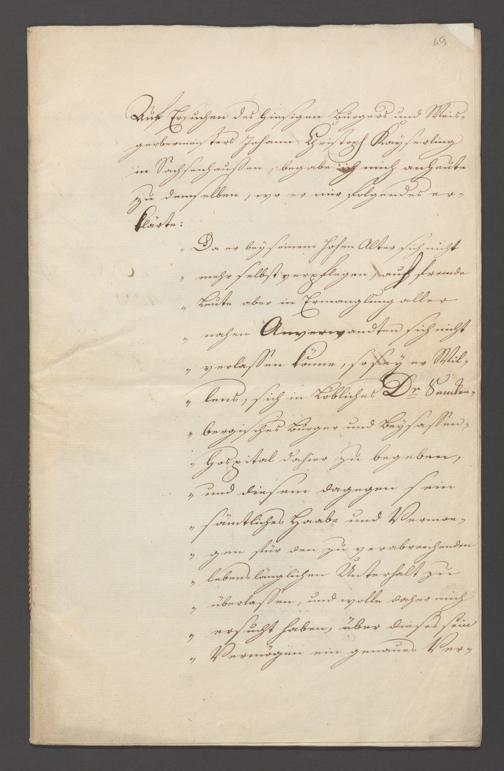 69
Auf Ersuchen des hiesigen Burgers und Weis-
gerbermeisters Johann Christoph Kayserling
in Sachsenhaussen, begabe ich mich anheute
zu demselben, wo er mir folgendes er-
klärte:
„ Da er bey seinem hohen Alter sich nicht
„ mehr selbst verpflegen, auf fremde
„ Leute aber in Ermanglung aller
„ nahen Anverwandten sich nicht
„ verlassen könne, so sey er Wil-
„ lens, sich in Löbliches Dr. Senken-
„ bergisches Burger und Beysassen-
„ Hospital dahier zu begeben,
„ und diesem dagegen sein
„ sämtliches Haabe und Vermoe-
„ gen für den zu verabreichenden
„ lebenslänglichen Unterhalt zu
„ überlassen, und wolle daher mich
„ ersucht haben, über dieses sein
„ Vermögen ein genaues Ver-